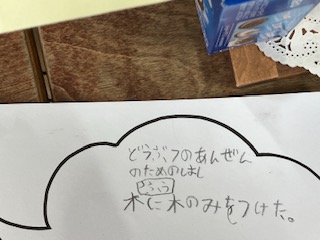 どうぶつのあんぜん
のためのしまし
ふう
木に木のみをつけた。